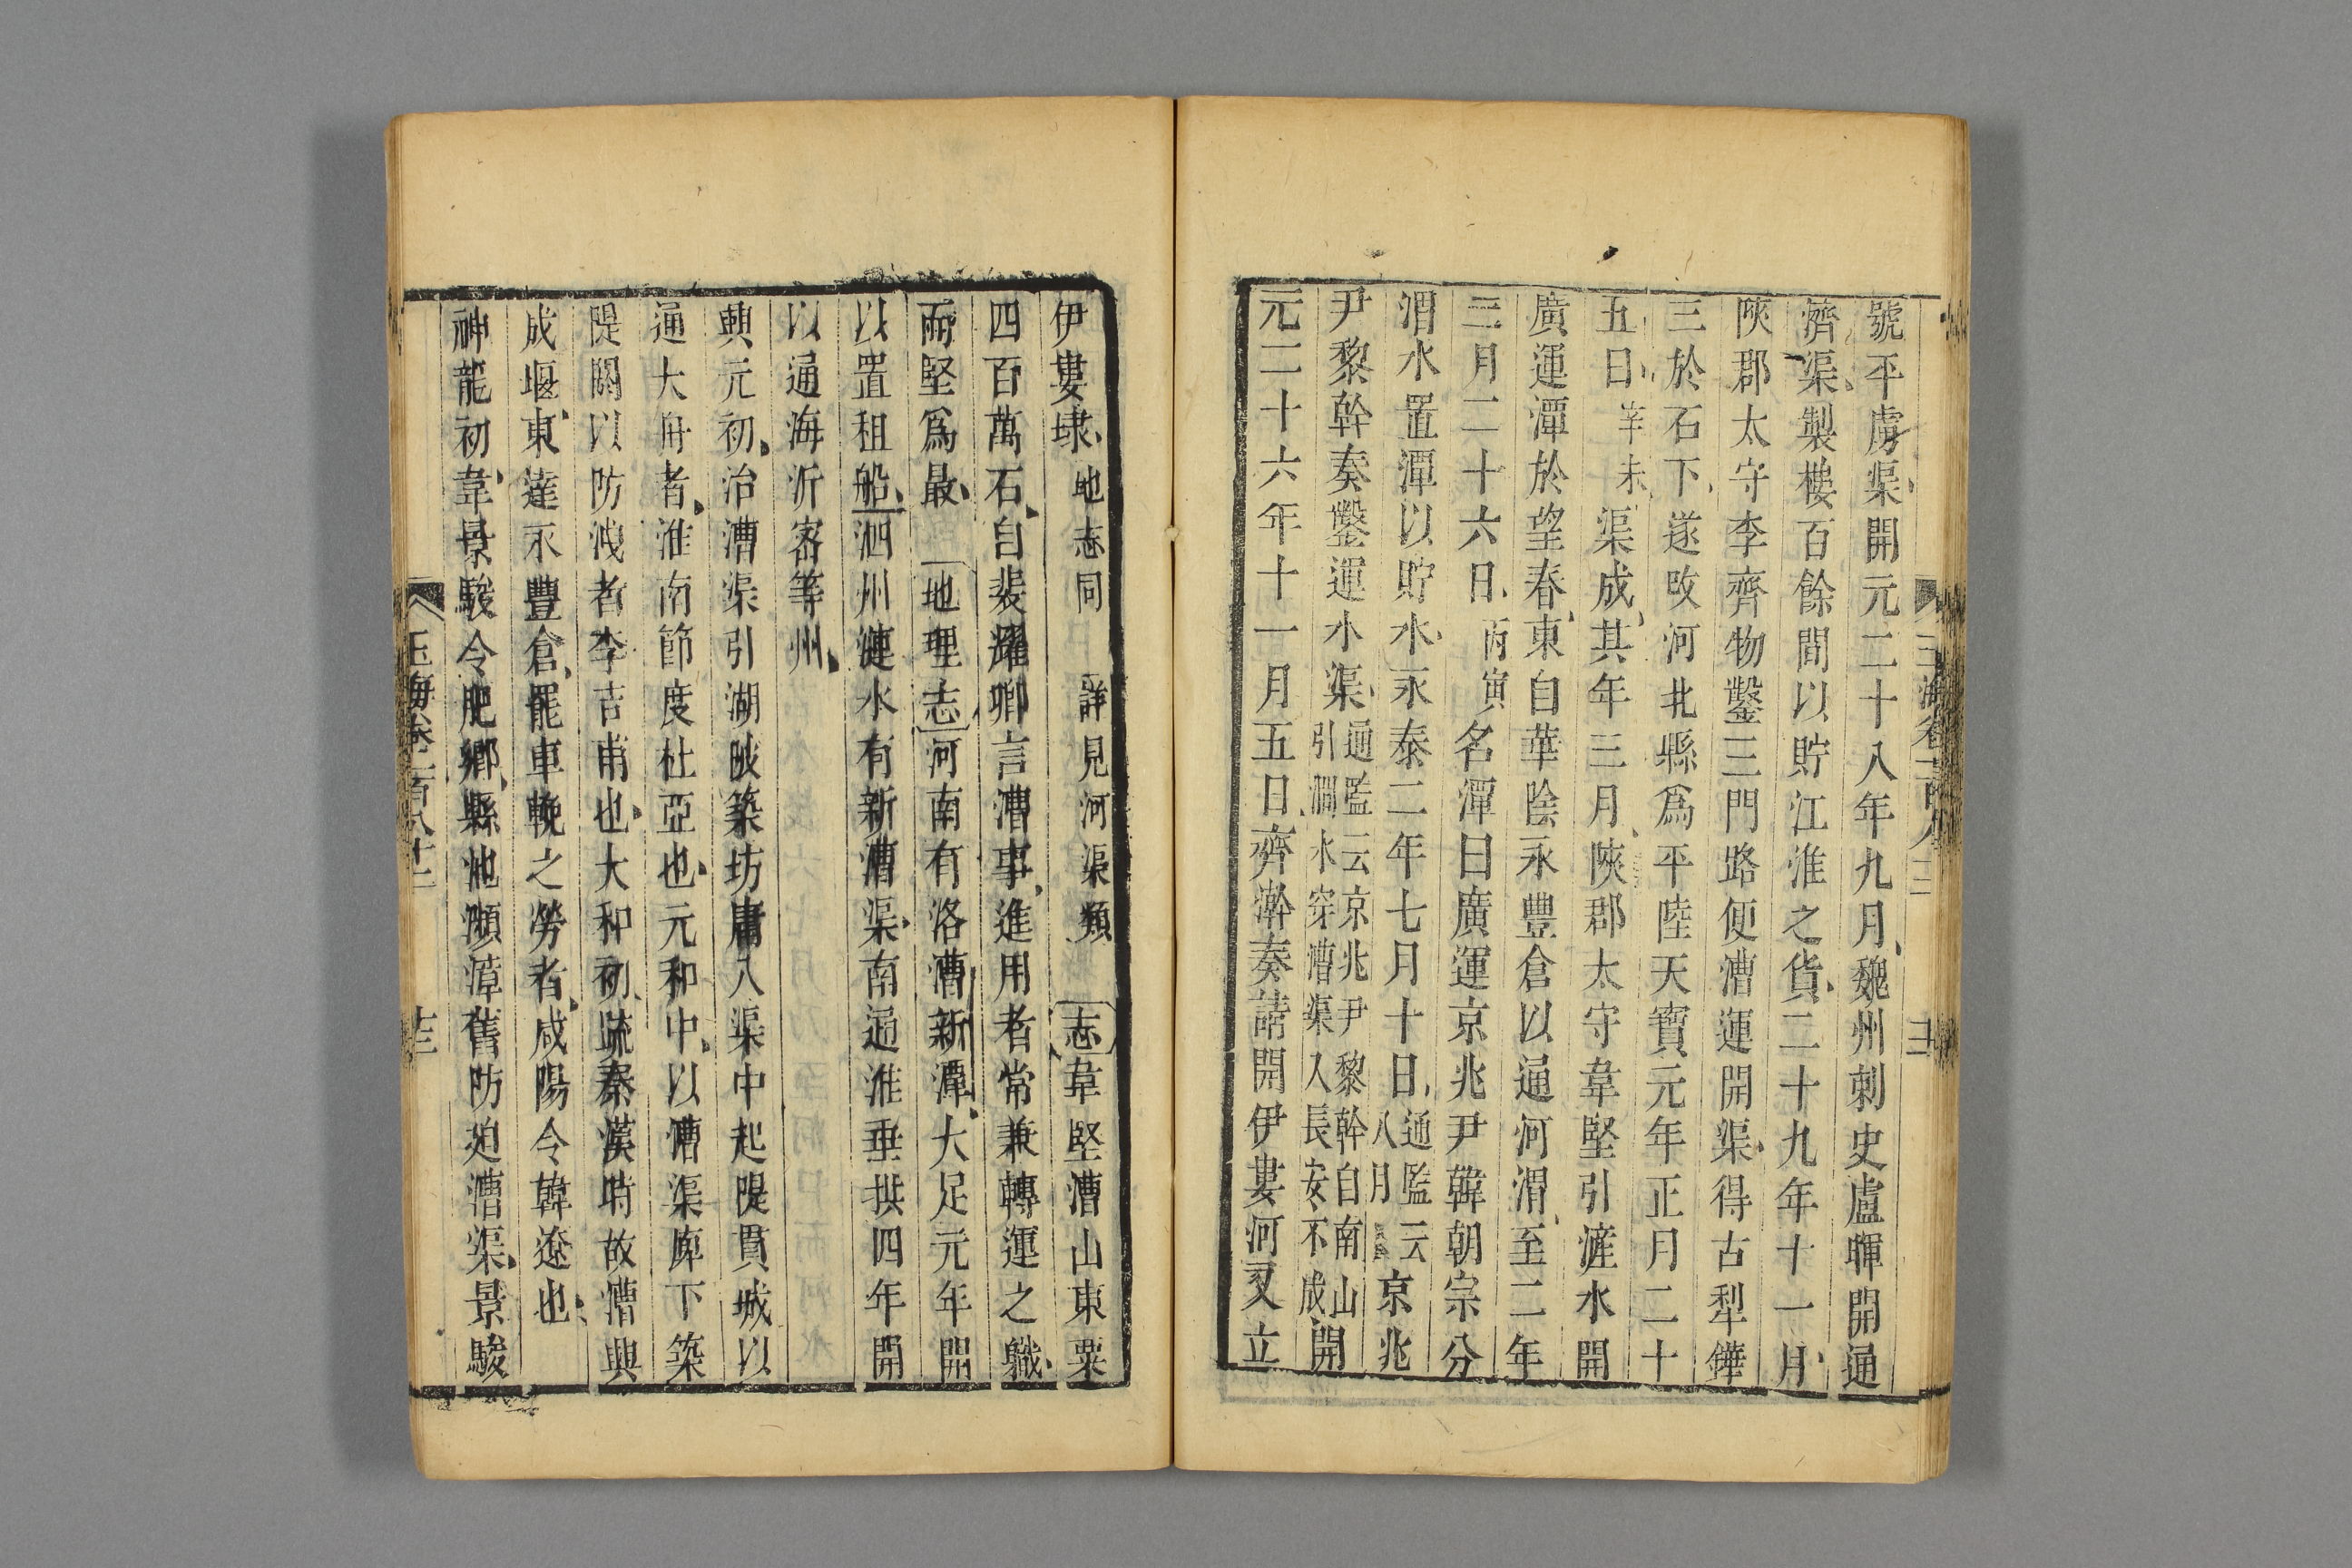 號平虜渠開元二十八年九月魏州刺史盧暉開通
濟渠製樓百餘間以貯江淮之貨二十九年十一月
陝郡太守李齊物鑿三門路便漕運開渠得古犁鏵
三於石下遂改河北縣爲平陸天寶元年正月二十
五日辛未渠成其年三月陝郡太守韋堅引滻水開
廣運潭於望春東自華陰永豐倉以通河渭至二年
三月二十六日丙寅名潭曰廣運京兆尹韓朝宗分
渭水置潭以貯水永泰二年七月十日通監云八月京兆
尹黎幹奏鑿運水渠通監云京兆尹黎幹自南山引澗水穿漕渠入長安不成開
元二十六年十一月五日齊澣奏請開伊婁河又立
伊婁埭地志同 詳見河渠類 志韋堅漕山東粟
四百萬石自裴耀卿言漕事進用者常兼轉運之職
而堅爲最 地理志河南有洛漕新潭大足元年開
以置租船泗州漣水有新漕渠南通淮垂拱四年開
以通海沂密等州
興元初治漕渠引湖陂築坊庸入渠中起隄貫城以
通大舟者淮南節度杜亞也元和中以漕渠庳下築
隄閼以防洩者李吉甫也大和初疏秦漢時故漕興
成堰東達永豐倉罷車輓之勞者咸陽令韓遼也
神龍初韋景駿令肥鄉縣地瀕漳舊防迫漕渠景駿
玉海卷一百八十二